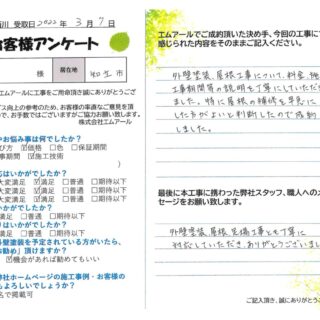 川 受取日2022年3月7日
お客様アンケート
様 居住地 知立市
エムアールに工事をご用命頂き誠にありがとうご
ビス向上の参考のため、お客様の率直なご意見を頂
ので、お手数ではございますがご協力お願い致します。
株式会社エムアール
やお悩み事は何でしたか?
び方 ☑価格 □色 □保証期間
事期間 ☑施工技術
)
応はいかがでしたか?
大変満足 ☑満足 □普通 □期待以下
はいかがでしたか?
大変満足 ☑満足 □普通 □期待以下
はいかがでしたか?
大変満足 □満足 □普通 □期待以下
かがでしたか?
満足 □普通 □期待以下
外壁塗装を予定されている方がいたら、
お勧め」頂けますか?
☑機会があれば勧めてもいい
弊社ホームページの施工事例・お客様の
もよろしいでしょうか?
名で掲載可
エムアールでご成約頂いた決め手、今回の工事に
感じられた内容をそのままご記入ください。
外壁塗装、屋根工事について、料金、施
工事期間等の説明も丁寧にしていただ
ました。特に屋根の補修を早急に
した方がよいと判断したので成約
しました。
最後に本工事に携わった弊社スタッフ、職人へのメ
セージをお願い致します。
外壁塗装、屋根、足場工事とも丁寧に
対応していただき、ありがとうございまし
ご記入頂き、誠にありがとうご